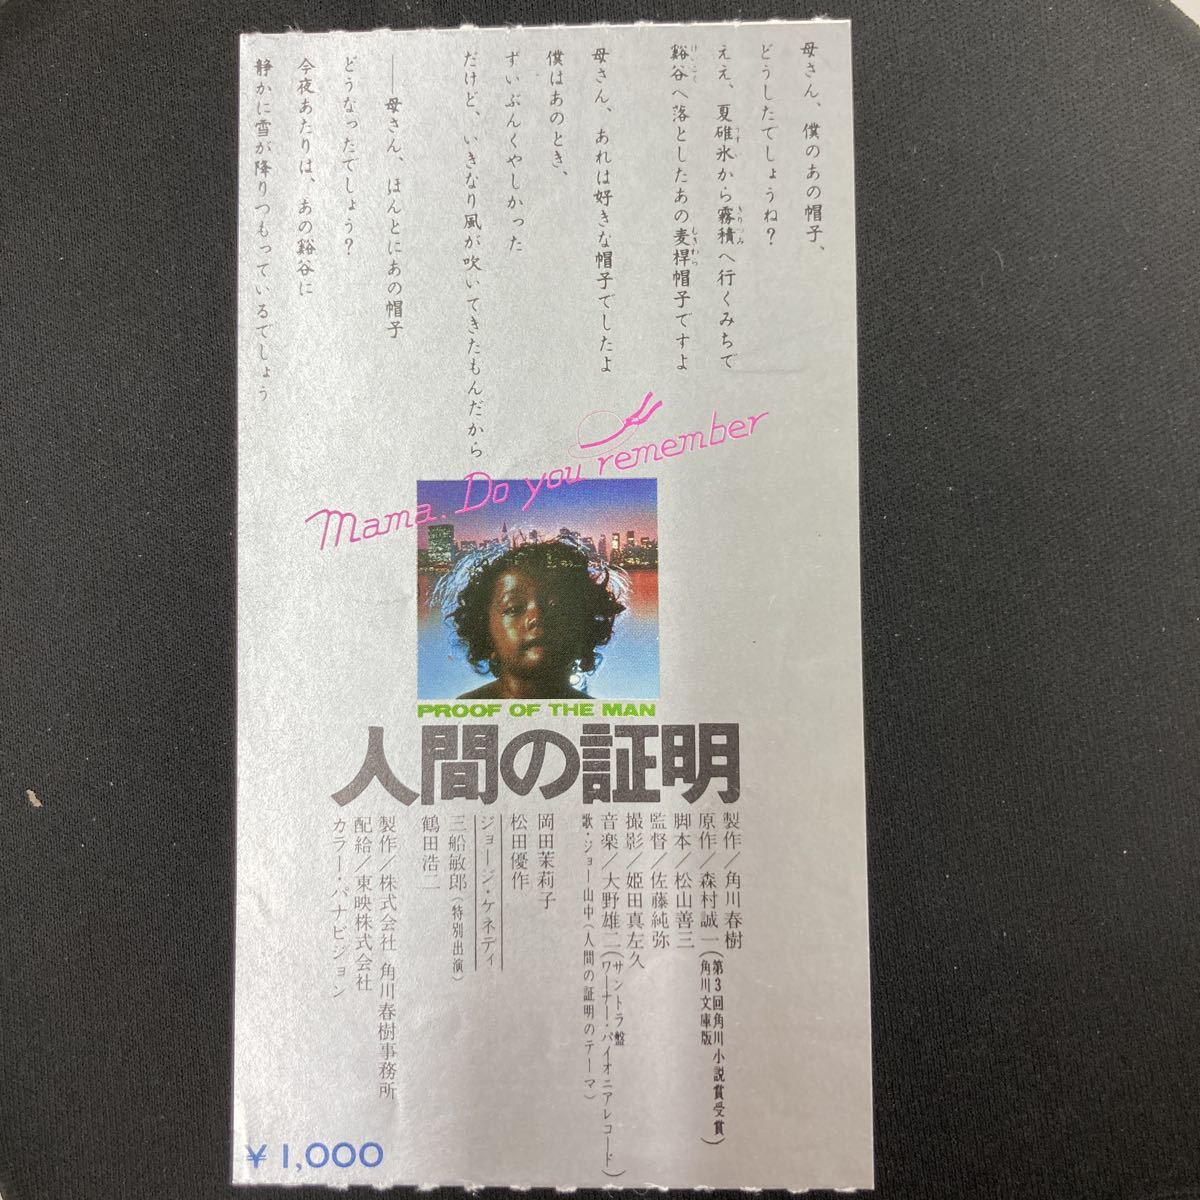 母さん、僕のあの帽子、
どうしたでしょうね？
ええ、夏碓氷から霧積へ行くみちで
谿谷へ落としたあの麦稈帽子ですよ
母さん、あれは好きな帽子でしたよ
僕はあのとき、
ずいぶんくやしかった
だけど、いきなり風が吹いてきたもんだから
――母さん、ほんとにあの帽子
どうなったでしょう？
今夜あたりは、あの谿谷に
静かに雪が降りつもっているでしょう
Mama. Do you remember
PROOF OF THE MAN
人間の証明
製作／角川春樹
原作／森村誠一（第3回角川小説賞受賞 角川文庫版）
脚本／松山善三
監督／佐藤純弥
撮影／姫田真左久
音楽／大野雄二（サントラ盤 ワーナー・パイオニアレコード）
歌・ジョー山中（人間の証明のテーマ）
岡田茉莉子
松田優作
ジョージ・ケネディ
三船敏郎（特別出演）
鶴田浩二
製作／株式会社 角川春樹事務所
配給／東映株式会社
カラー・パナビジョン
¥1,000